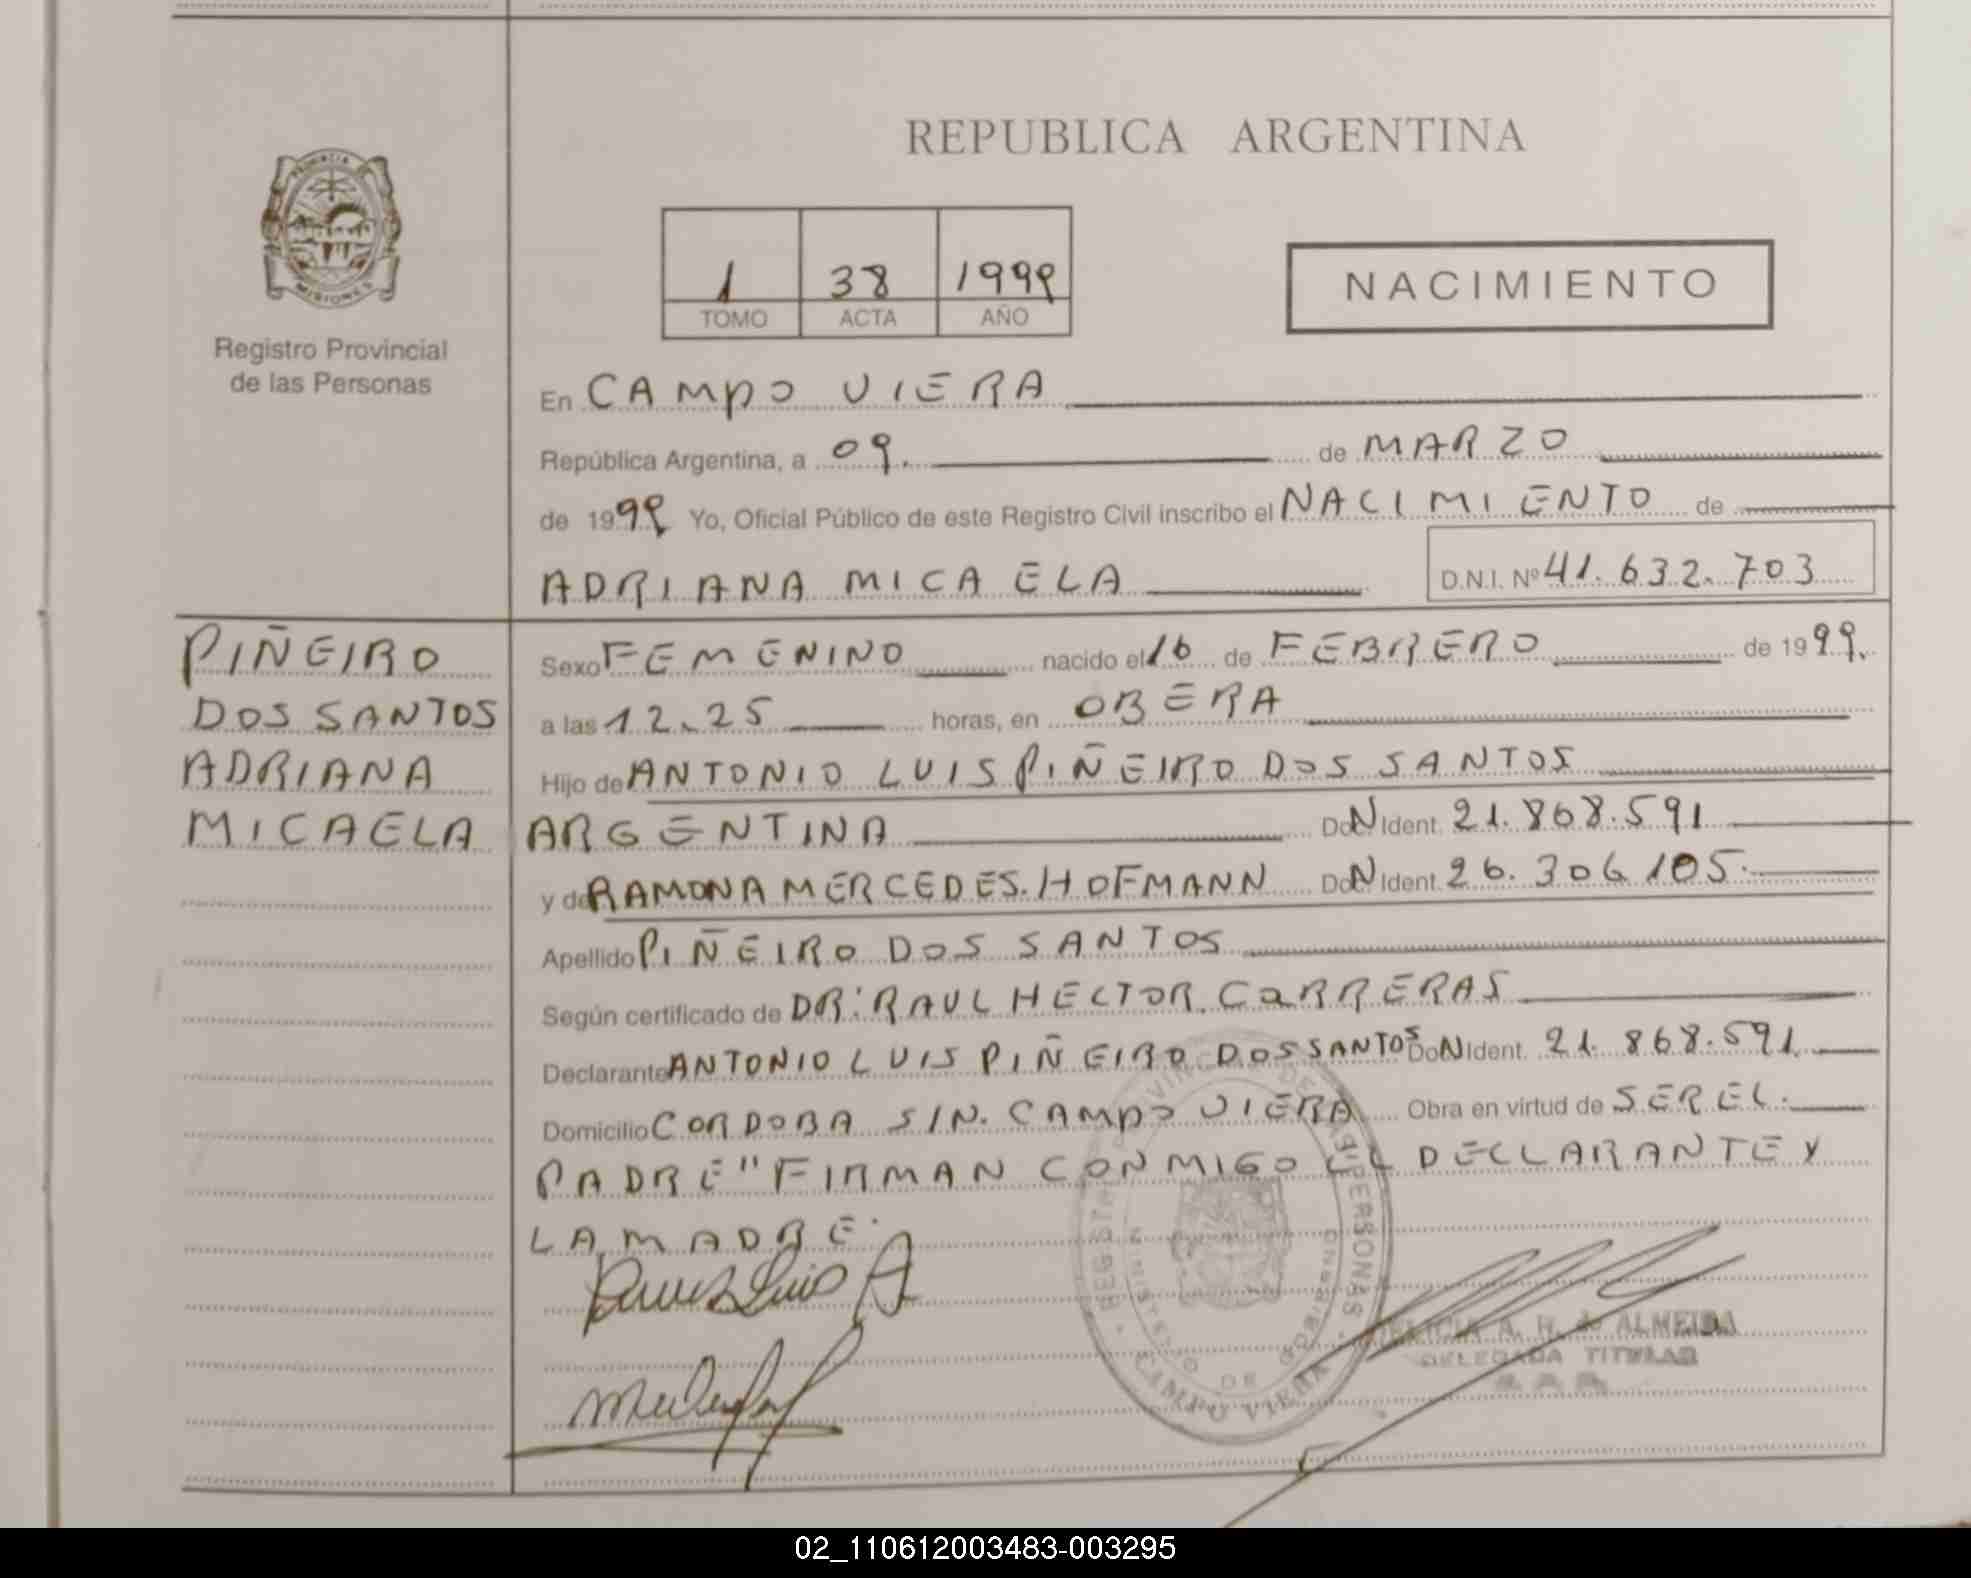 REPUBLICA ARGENTINA
PROVINCIA
MISIONES
Registro Provincial
de las Personas
1 38 1999
TOMO ACTA AÑO
NACIMIENTO
En CAMPO VIERA
República Argentina, a 09. de MARZO
de 1999 Yo, Oficial Público de este Registro Civil inscribo el NACIMIENTO de
ADRIANA MICAELA D.N.I. Nº 41.632.703
PIÑEIRO
DOS SANTOS
ADRIANA
MICAELA
Sexo FEMENINO nacido el 16 de FEBRERO de 1999.
a las 12.25 horas, en OBERA
Hijo de ANTONIO LUIS PIÑEIRO DOS SANTOS
ARGENTINA Doc N Ident. 21.868.591
y de RAMONA MERCEDES. HOFMANN Doc N Ident. 26.306.105.
Apellido PIÑEIRO DOS SANTOS
Según certificado de DR: RAUL HECTOR CARRERAS
Declarante ANTONIO LUIS PIÑEIRO DOS SANTOS Doc N Ident. 21.868.591.
Domicilio CORDOBA S/N. CAMPO VIERA Obra en virtud de SER EL.
PADRE" FIRMAN CONMIGO EL DECLARANTE Y
LA MADRE.
Luis A
REGISTRO PROVINCIAL DE LAS PERSONAS
MINISTERIO DE GOBIERNO
CAMPO VIERA
A. H. de ALMEIDA
DELEGADA TITULAR
02_110612003483-003295